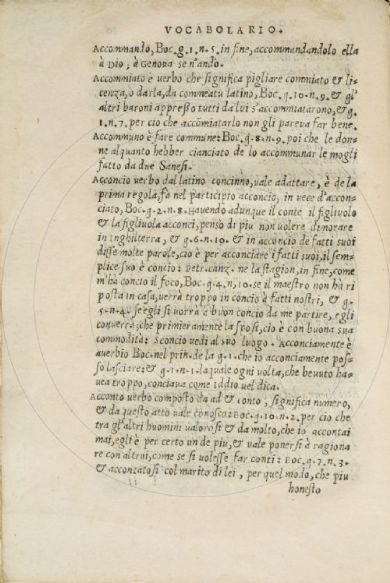 VOCABOLARIO.
Accommando, Boc. g. 1. n. 5. in fine, accommandandolo ella
à Dio, à Genova se n'ando.
Accommiato è verbo che significa pigliare commiato & li-
cenza, o darla, da commeatu latino, Boc. g. 10. n. 9. & gl'
altri baroni appresso tutti da lui s'accommiatarono, & g.
1. n. 7. per cio che accōmiatarlo non gli pareva far bene.
Accommuno è fare commune: Boc. g. 8. n. 9. poi che le don-
ne alquanto hebber cianciato de lo accommunar le mogli
fatto da due Sanesi.
Acconcio verbo dal latino concinno, vale adattare, è de la
prima regola, fo nel participio acconcio, in vece d'accon-
ciato, Boc. g. 2. n. 8. Havendo adunque il conte il figlivolo
& la figlivola acconci, pensò di piu non volere dimorare
in Inghilterra, & g. 6. n. 10. & in acconcio de fatti suoi
disse molte parole, cio è per acconciare i fatti suoi, il sem-
plice suo è concio: Petr. canz. ne la stagion, in fine, come
m'ha concio il foco, Boc. g. 4. n. 10. se il maestro non ha ri
posta in casa, verrà troppo in concio à fatti nostri, & g.
5. n. 4. se egli si vorrà a buon concio da me partire, egli
converrà, che primieramente la sposi, cio è con buona sua
commodità: Sconcio vedi al suo luogo. Acconciamente è
averbio Boc. nel prin. de la g. 1. che io acconciamente pos-
so lasciare: & g. 1. n. 1. la quale ogni volta, che bevuto ha-
vea troppo, conciava come Iddio vel dica.
Acconto verbo composto da ad & conto, significa numero,
& da questo atto vale conosco: Boc. g. 10. n. 2. per cio che
tra gl'altri huomini valorosi & da molto, che io accontai
mai, egli è per certo un de piu, & vale ponersi à ragiona
re con altrui, come se si volesse far conti: Boc. g. 7. n. 3.
& accontatosi col marito di lei, per quel modo, che piu
honesto